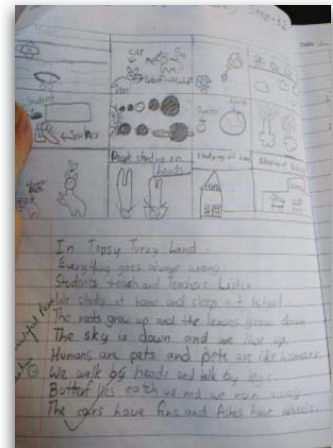 Step-32
CAT
student
People standing on heads
Studying at home
Sleeping at school
In Topsy Turvy Land.
Everything goes always wrong.
Students teach and Teachers Listen
We study at home and sleep at School.
The roots grow up and the leaves grow down
The sky is down and we live up
Humans are pets and pets are like humans.
We walk by heads and talk by legs
Butterflies catch us and we run away
The cars have fins and fishes have wheels.